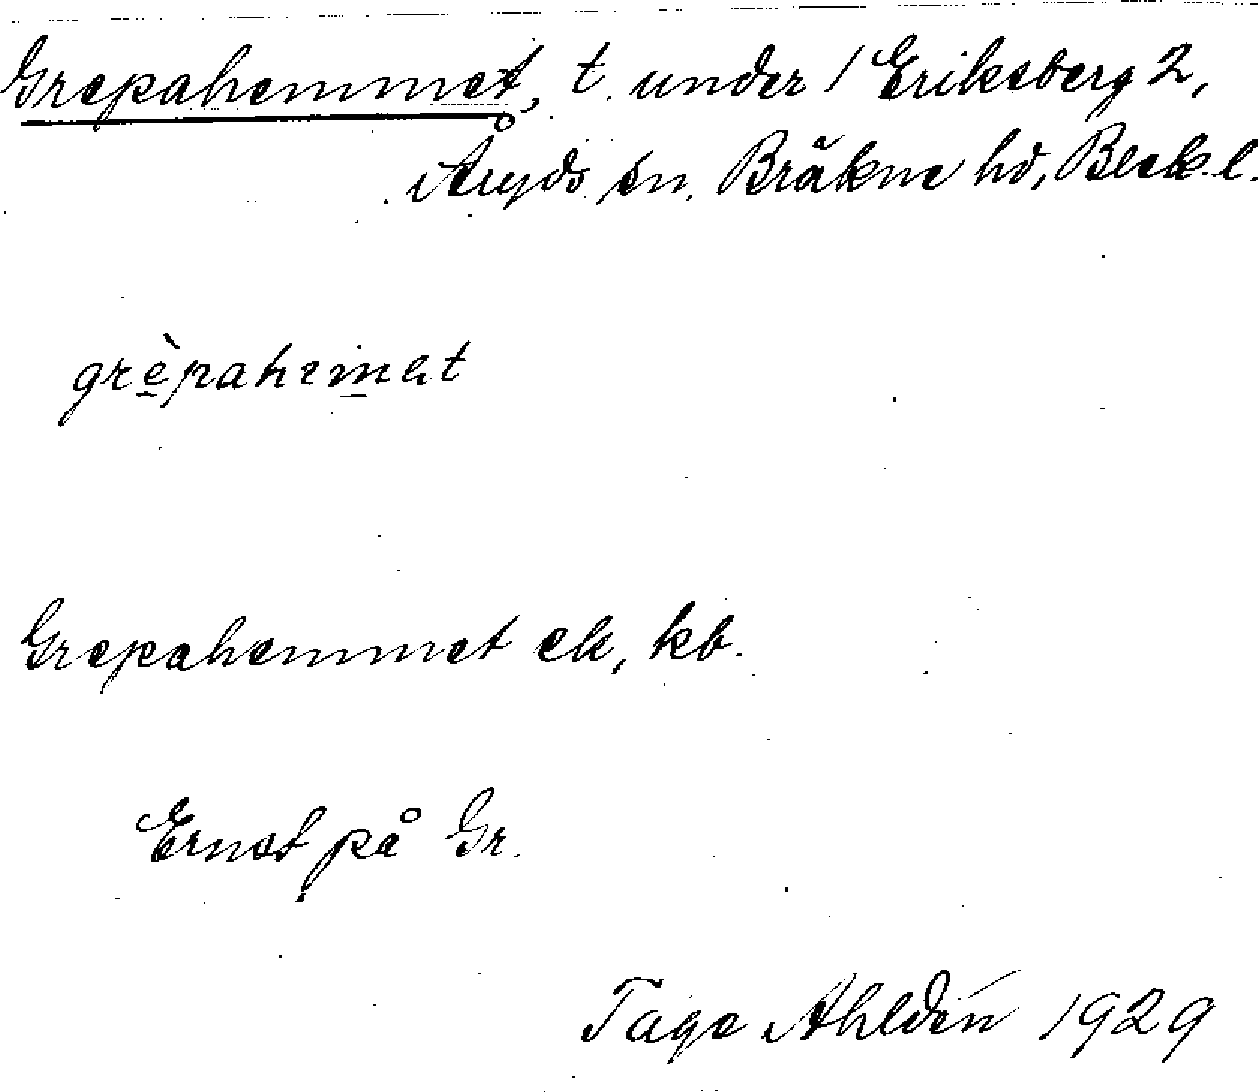 Grepahemmet, t. under 1 Eriksberg 2,
Åryds sn, Bräkne hd, Blek. l.
grèpahemət
Grepahemmet ek, kb.
Ernst på Gr.
Tage Ahldén 1929